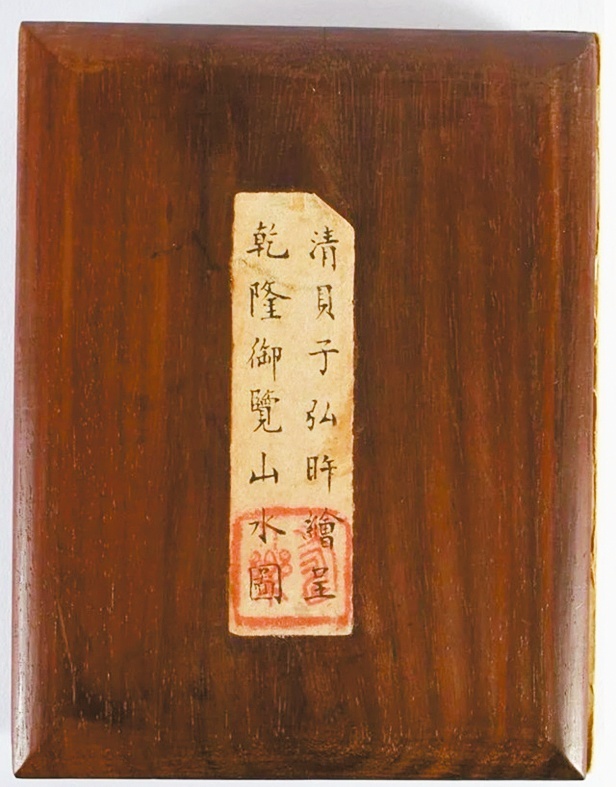 清貝子弘旿繪呈
乾隆御覽山水圖